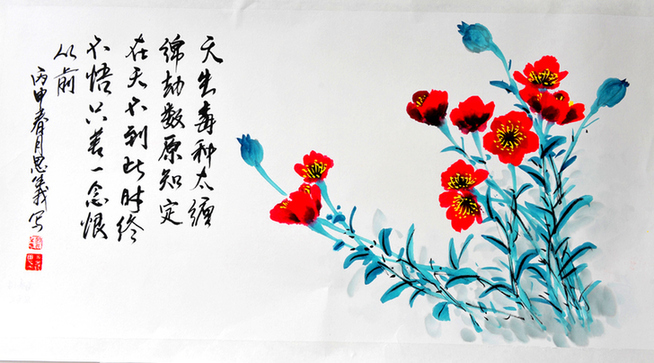 天生毒种太缠
绵劫数原知定
在天不到此时终
不悟只差一念恨
从前
丙申春月思義写